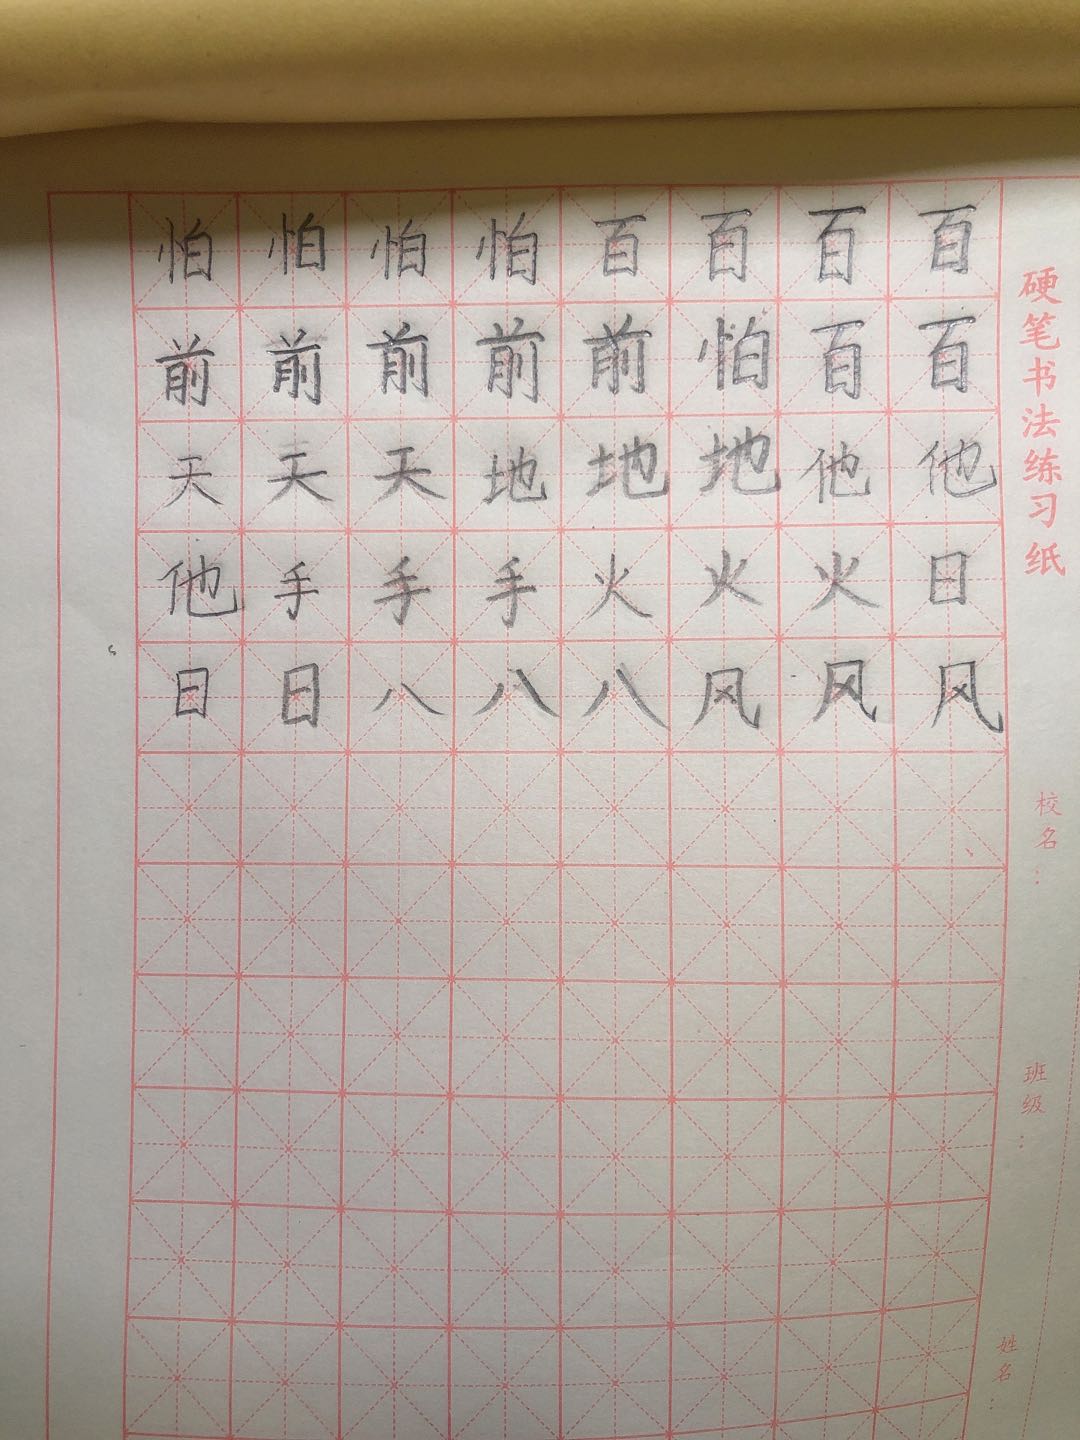 怕怕怕怕百百百百
前前前前前怕百百
天天天地地地他他
他手手手火火火日
日日八八八风风风
硬笔书法练习纸
校名：
班级：
姓名：